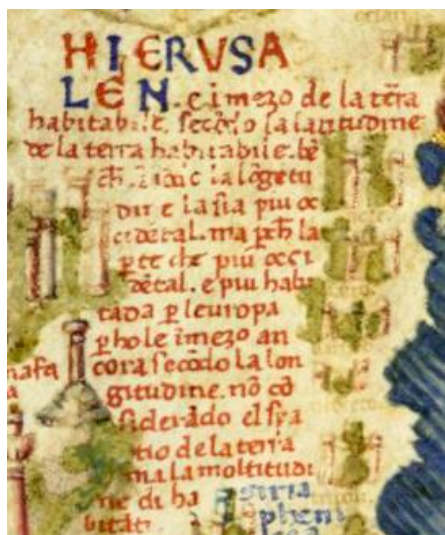 HIERUSA
LEN. e i mezo de la tēra
habitabile. secōdo la latitudine
de la terra habitabile. bē
ch. la lōgetu
dine e la sia piu oc
cidētal. ma ꝑch la
ꝑte che piu occi
dētal. e piu habi
tada ꝑ leuropa
ꝑhole īmezo an
cora secōdo la lon
gitudine. nō cō
siderādo el spa
tio de la terra
ma la moltitudi
ne di ha
bitāti
nafa
a
siria
pheni